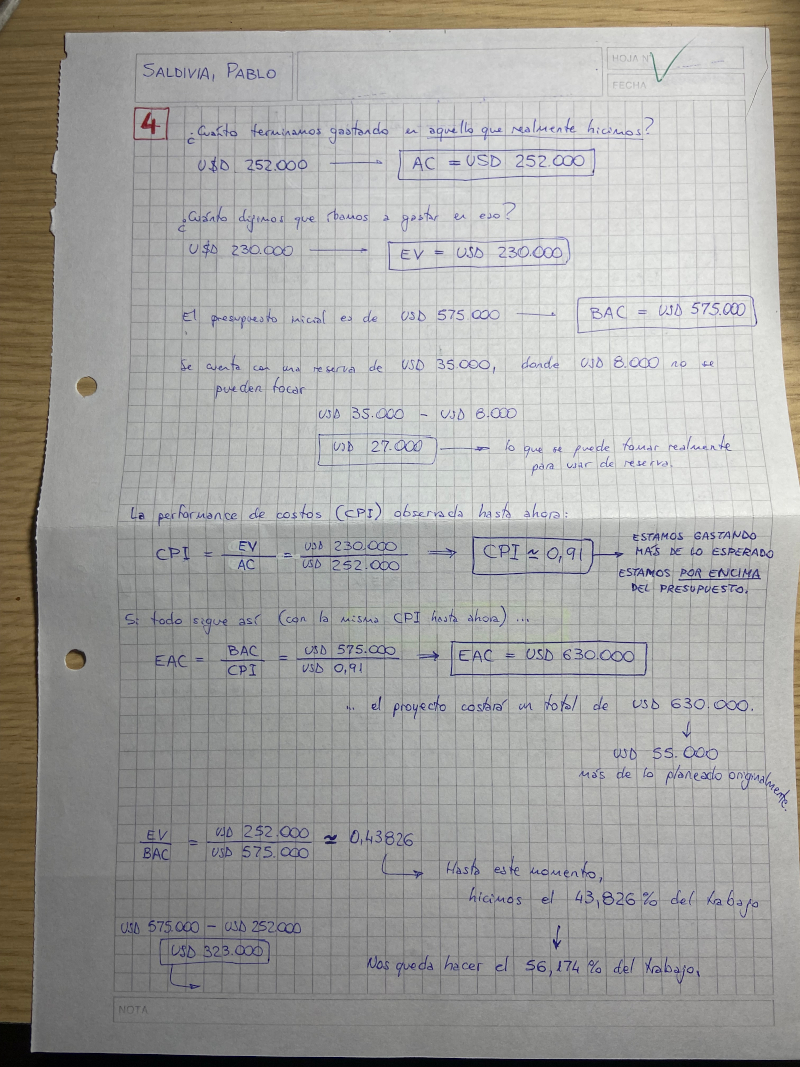 SALDIVIA, PABLO
HOJA N
FECHA
4
¿Cuánto terminamos gastando en aquello que realmente hicimos?
U$D 252.000 → AC = USD 252.000
¿Cuánto dijimos que íbamos a gastar en eso?
U$D 230.000 → EV = USD 230.000
El presupuesto inicial es de USD 575.000 → BAC = USD 575.000
Se cuenta con una reserva de USD 35.000, donde USD 8.000 no se
pueden tocar
USD 35.000 - USD 8.000
USD 27.000 → lo que se puede tomar realmente
para usar de reserva.
La performance de costos (CPI) observada hasta ahora:
CPI = EV / AC = USD 230.000 / USD 252.000 ⇒ CPI ≃ 0,91 →
ESTAMOS GASTANDO
MÁS DE LO ESPERADO
ESTAMOS POR ENCIMA
DEL PRESUPUESTO.
Si todo sigue así (con la misma CPI hasta ahora) ...
EAC = BAC / CPI = USD 575.000 / USD 0,91 ⇒ EAC = USD 630.000
... el proyecto costará un total de USD 630.000.
↓
USD 55.000
más de lo planeado originalmente.
EV / BAC = USD 252.000 / USD 575.000 ≃ 0,43826
→ Hasta este momento,
hicimos el 43,826% del trabajo
↓
Nos queda hacer el 56,174% del trabajo.
USD 575.000 - USD 252.000
USD 323.000
→
NOTA